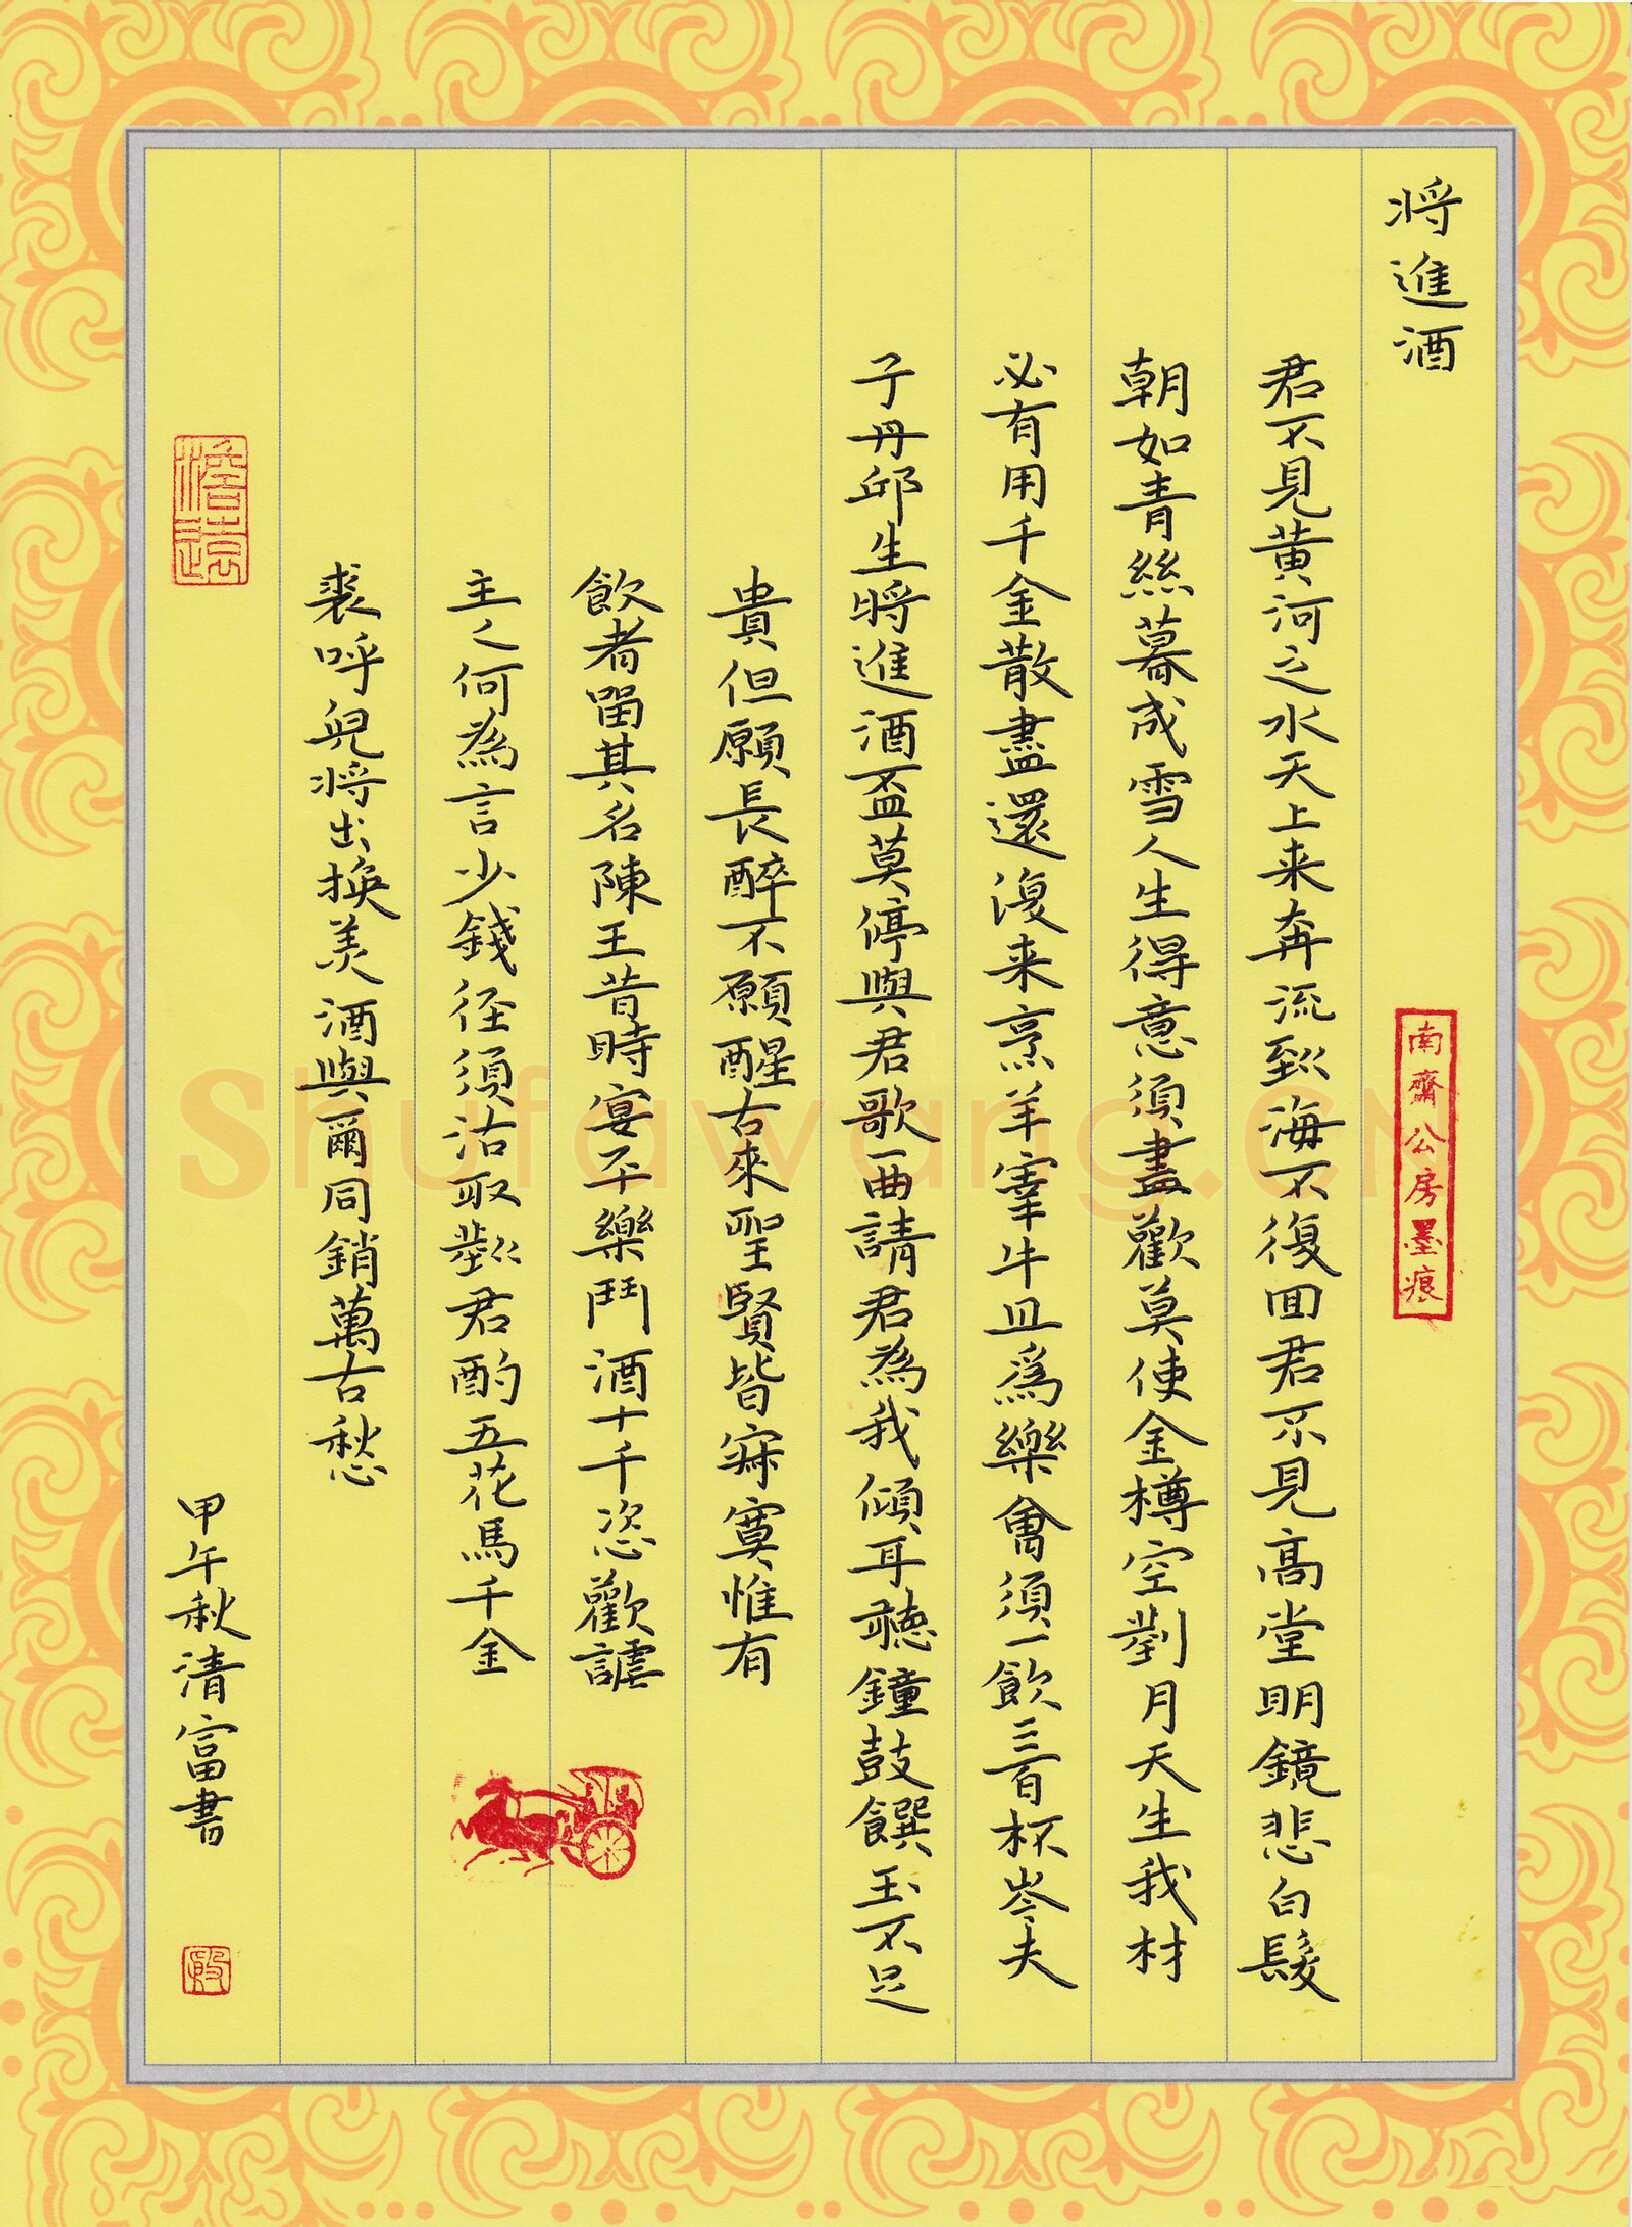 将進酒
君不見黃河之水天上来奔流到海不復回君不見高堂明鏡悲白髮
朝如青絲暮成雪人生得意須盡歡莫使金樽空對月天生我材
必有用千金散盡還復来烹羊宰牛且為樂會須一飲三百杯岑夫
子丹邱生将進酒盃莫停與君歌一曲請君為我傾耳聽鐘鼓饌玉不足
貴但願長醉不願醒古來聖賢皆寂寞惟有
飲者留其名陳王昔時宴平樂鬥酒十千恣歡謔
主人何為言少錢径須沽取對君酌五花馬千金
裘呼兒将出換美酒與爾同銷萬古愁
甲午秋清富書
南齋公房墨痕
shufawang.cn